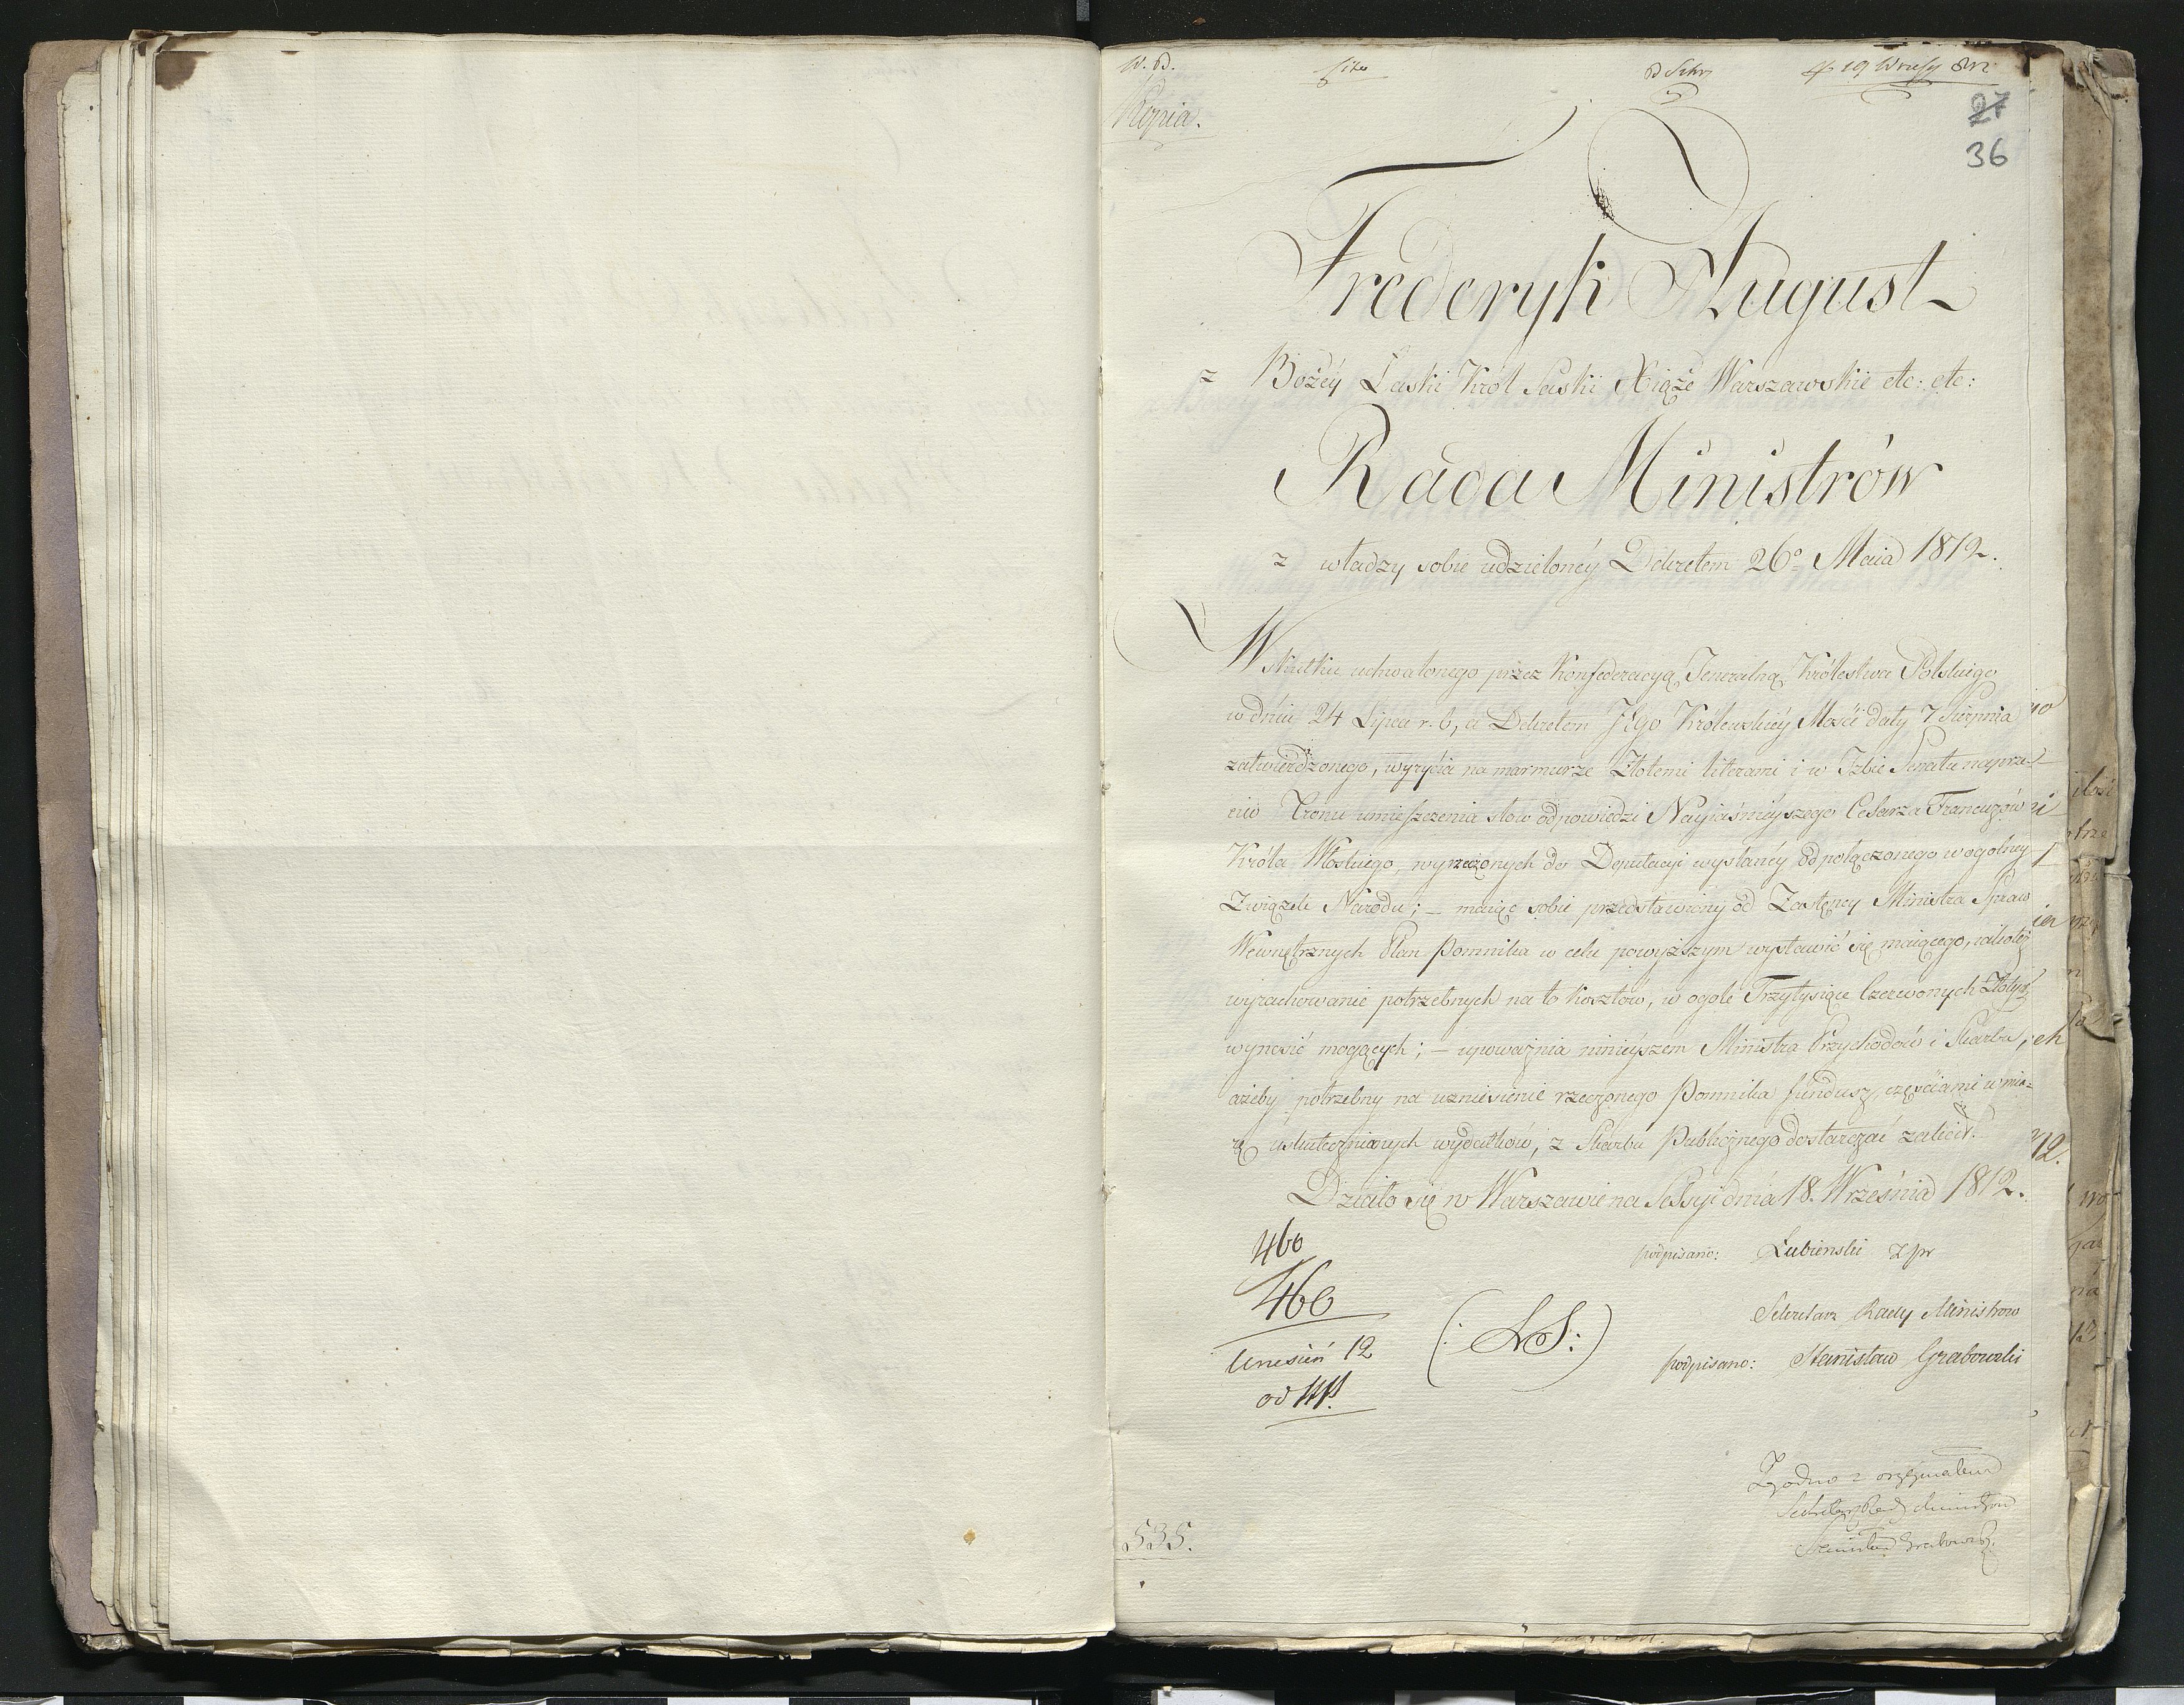 W. D.
27
36
Kopia.
Fréderyk August
z Bożéy Łaski Król Saski Xiąże Warszawskie etc: etc:
Rada Ministrów
z władzy sobie udzielonéy Dekretem 26º Maia 1812.
W skutku uchwalonego przez Konfederacyą Jeneralną Królestwa Polskiego
w dniu 24 Lipca r. b, a Dekretem JEgo Królewskiéy Mości daty 7 Sierpnia
zatwierdzonego, wyrycia na marmurze Złotemi literami i w Izbie Senatu naprze-
ciw Tronu umieszczenia słow odpowiedzi Nayiaśnieyszego Cesarza Francuzów
Króla Włoskiego, wyrzeczonych do Deputacyi wysłanéy od połączonego w ogolny
Związek Narodu; – maiąc sobie przedstawiony od Zastępcy Ministra Spraw
Wewnętrznych Plan Pomnika w celu powyższym wystawić się maiącego, iakoteż
wyrachowanie potrzebnych na to kosztów, w ogole Trzytysiące Czerwonych Złotych
wynosić mogących; – upoważnia ninieyszem Ministra Przychodów i Skarbu,
ażeby potrzebny na uzniesienie rzeczonego Pomnika fundusz, częściami w mia=
rę uskutecznianych wydatków, z Skarbu Publicznego dostarczać zalecił.
Działo się w Warszawie na Sessyi dnia 18. Września 1812.
460
podpisano: Łubienski z pr
460
Sekretarz Rady Ministrow
Uniesień 12
(: LS :)
podpisano: Stanisław Grabowski
od
Zgodno z oryginałem
Sekretarz Rady Ministrow
Stanisław Grabowski
535.